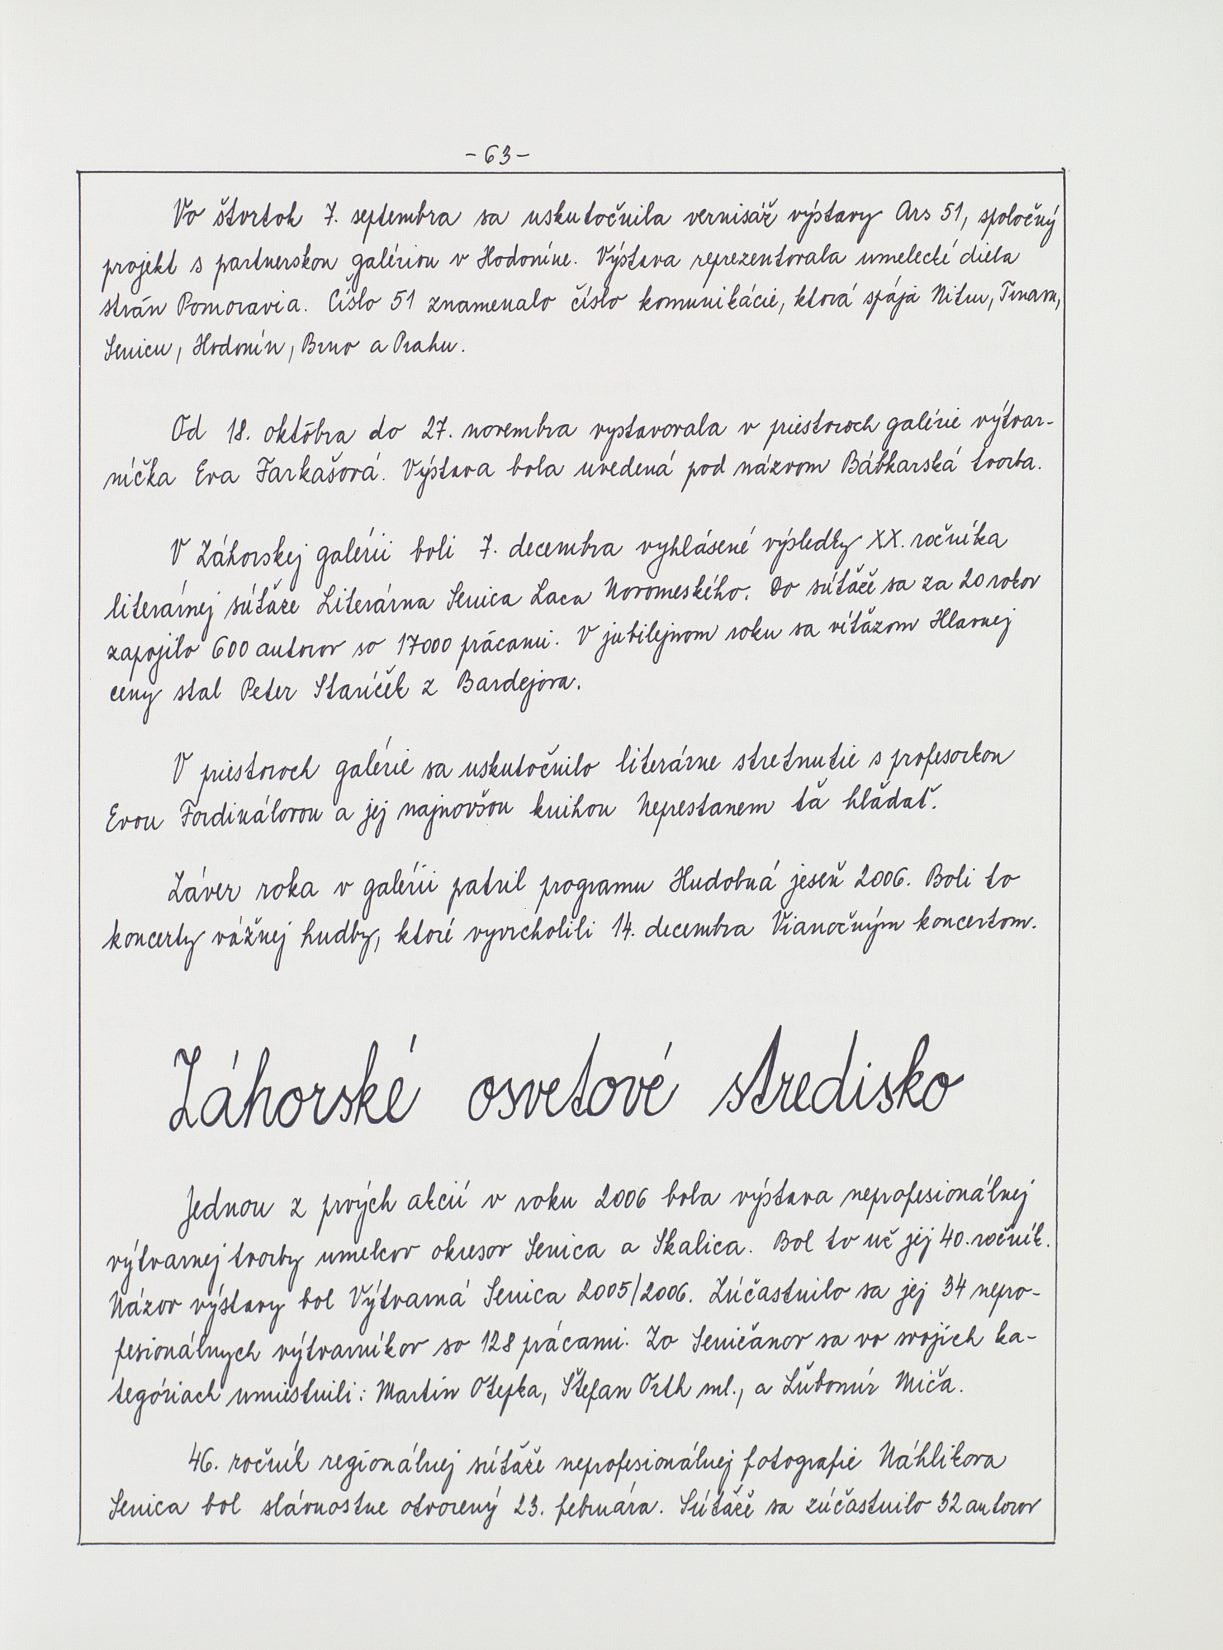 -63-
Vo štvrtok 7. septembra sa uskutočnila vernisáž výstavy Ars 51, spoločný
projekt s partnerskou galériou v Hodoníne. Výstava reprezentovala umelecké diela
strán Pomoravia. Číslo 51 znamenalo číslo komunikácie, ktorá spája Nitru, Trnavu,
Senicu, Hodonín, Brno a Prahu.
Od 18. októbra do 27. novembra vystavovala v priestoroch galérie výtvar-
níčka Eva Farkašová. Výstava bola uvedená pod názvom Bábkarská tvorba.
V Záhorskej galérii boli 7. decembra vyhlásené výsledky XX. ročníka
literárnej súťaže Literárna Senica Laca Novomeského. Do súťaže sa za 20 rokov
zapojilo 600 autorov so 17000 prácami. V jubilejnom roku sa víťazom Hlavnej
ceny stal Peter Staríček z Bardejova.
V priestoroch galérie sa uskutočnilo literárne stretnutie s profesorkou
Evou Fordinálovou a jej najnovšou knihou Neprestanem ťa hľadať.
Záver roka v galérii patril programu Hudobná jeseň 2006. Boli to
koncerty vážnej hudby, ktoré vyvrcholili 14. decembra Vianočným koncertom.
Záhorské osvetové stredisko
Jednou z prvých akcií v roku 2006 bola výstava neprofesionálnej
výtvarnej tvorby umelcov okresov Senica a Skalica. Bol to už jej 40. ročník.
Názov výstavy bol Výtvarná Senica 2005/2006. Zúčastnilo sa jej 34 nepro-
fesionálnych výtvarníkov so 128 prácami. Zo Seničanov sa vo svojich ka-
tegóriach umiestnili: Martin Otepka, Štefan Orth ml., a Ľubomír Miča.
46. ročník regionálnej súťaže neprofesionálnej fotografie Náhlikova
Senica bol slávnostne otvorený 23. februára. Súťaže sa zúčastnilo 32 autorov